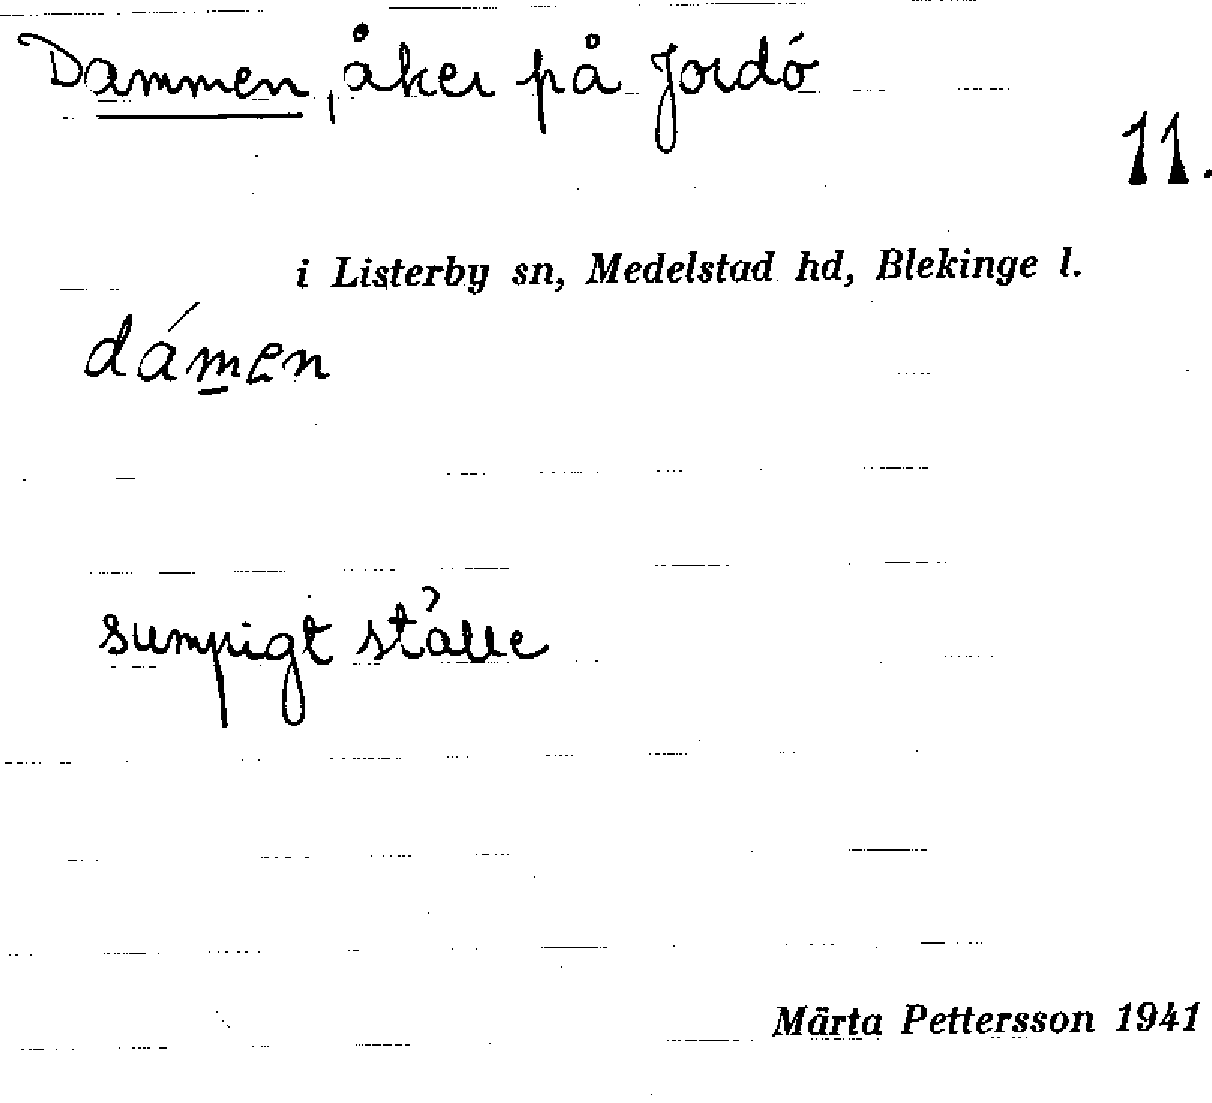 Dammen, åker på Jordö
11.
i Listerby sn, Medelstad hd, Blekinge l.
dámen
sumpigt ställe
Märta Pettersson 1941